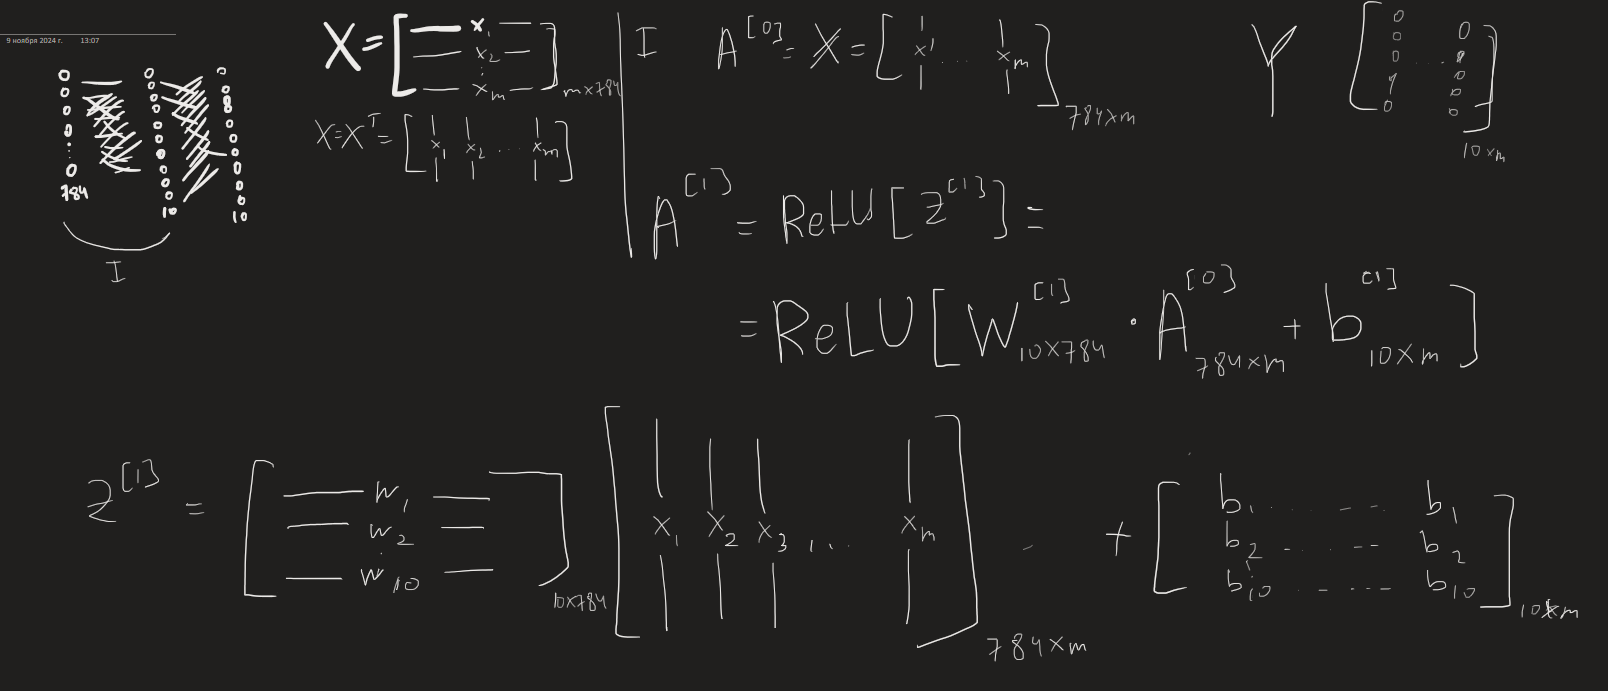 9 ноября 2024 г. 13:07
X = [ — x₁ — — x₂ — ⋮ — xₘ — ] m×784
X = Xᵀ = [ x₁ x₂ ... xₘ ]
784 10 10
I
I A[0] = X = [ x¹ .... xₘ ] 784×m
Y [ 0 0 0 1 0 ... 0 1 0 0 0 ] 10×m
A[1] = ReLU [ Z[1] ] =
= ReLU [ W[1] 10×784 · A[0] 784×m + b[1] 10×m ]
Z[1] = [ — w₁ — — w₂ — — w₁₀ — ] 10×784 [ x₁ x₂ x₃ ... xₘ ] 784×m + [ b₁ ... b₁ b₂ ... b₂ b₁₀ ... b₁₀ ] 10×m